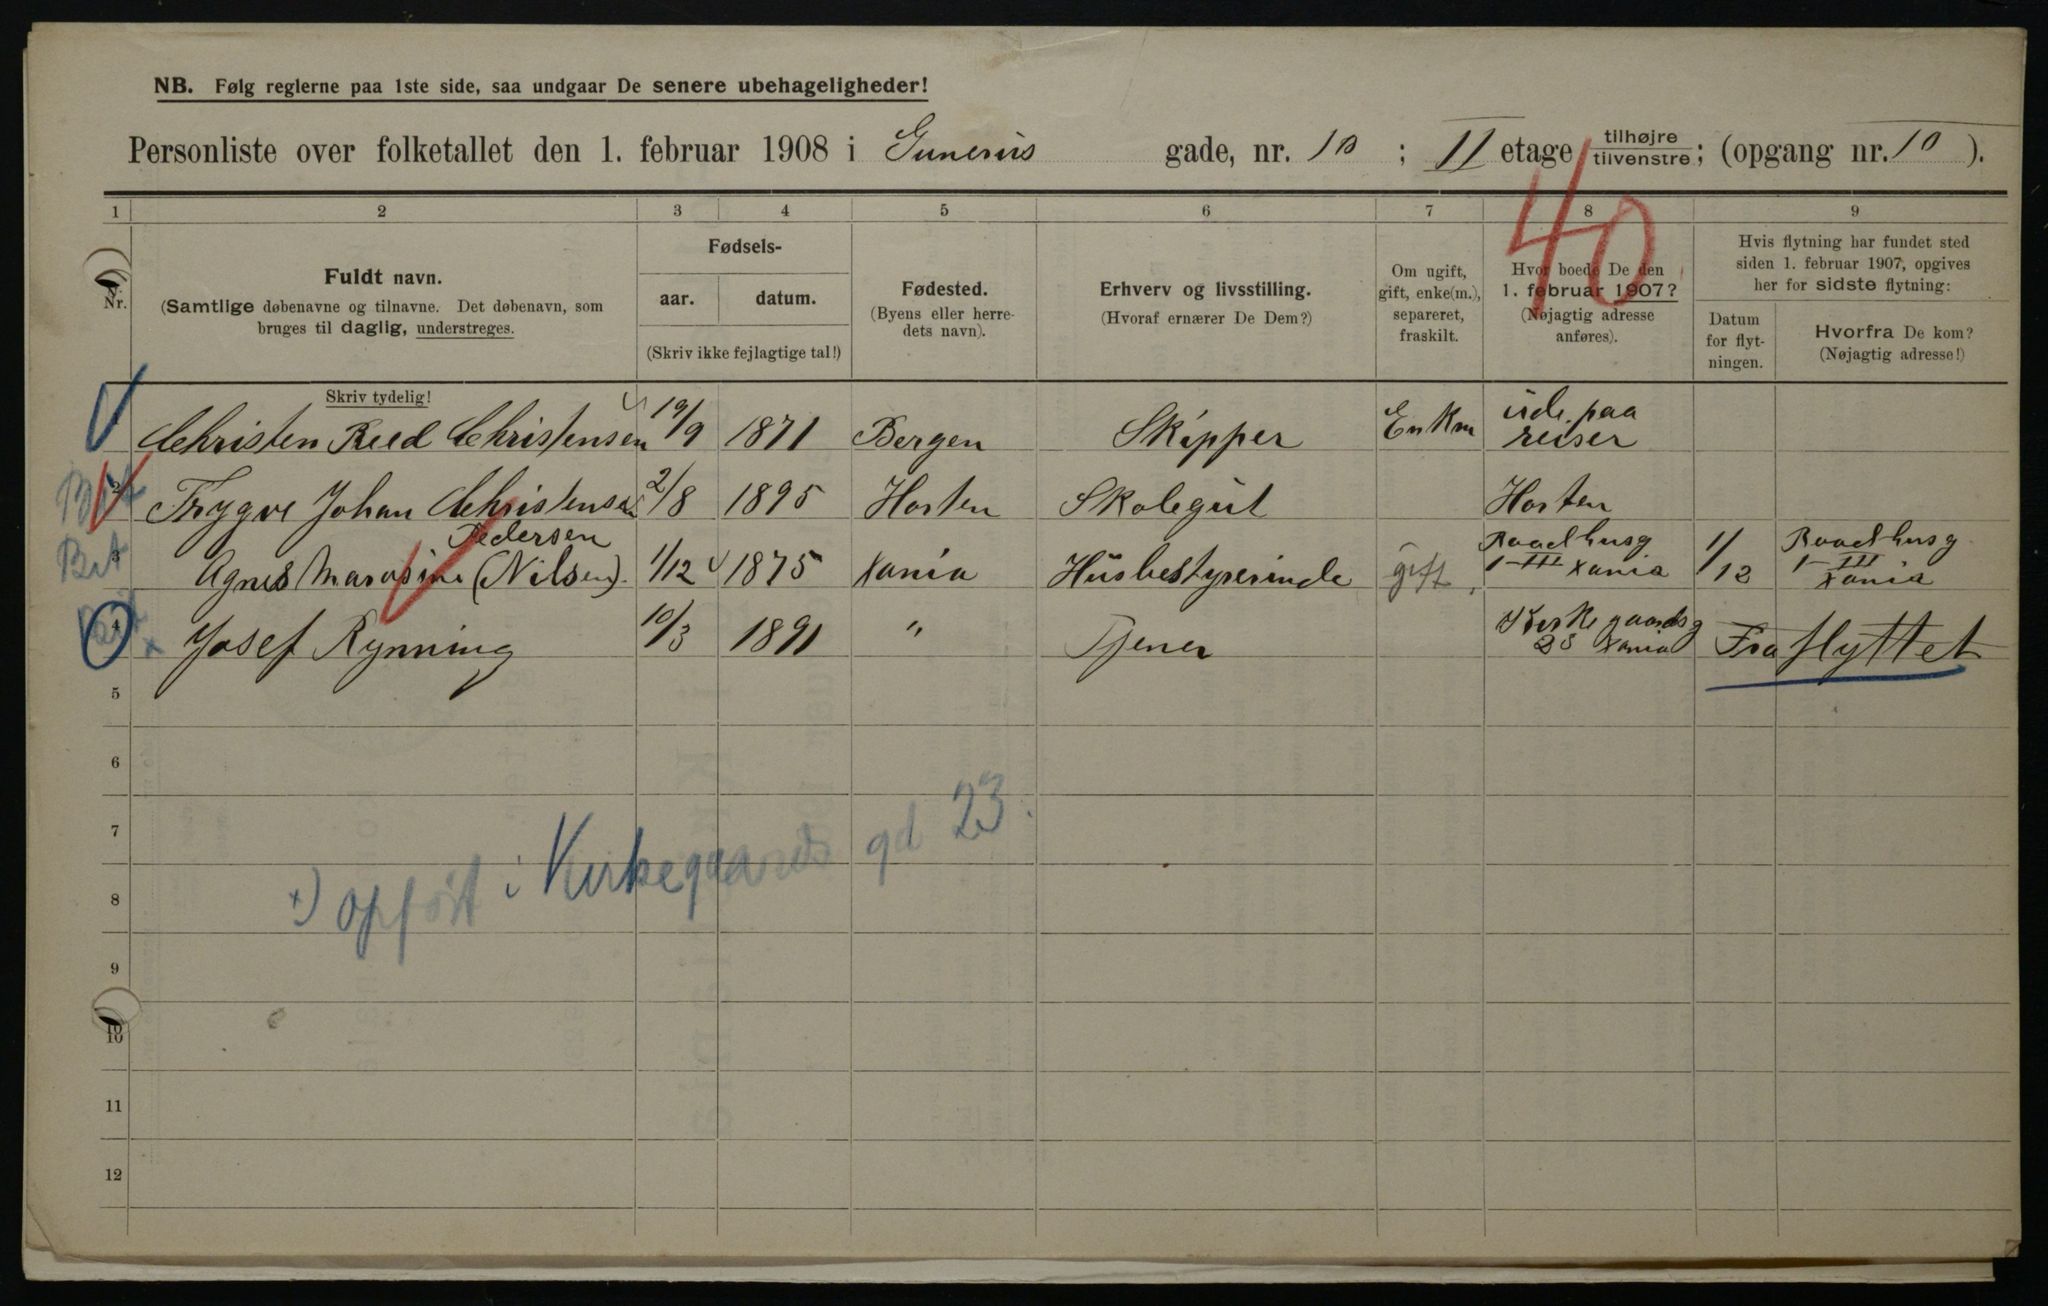 NB. Følg reglerne paa 1ste side, saa undgaar De senere ubehageligheder!
Personliste over folketallet den 1. februar 1908 i Gunerius gade, nr. 10 ; II etage tilhøjre tilvenstre; (opgang nr. 10 ).
1 2 3 4 5 6 7 8 9
40
Nr.
Fuldt navn.
(Samtlige døbenavne og tilnavne. Det døbenavn, som
bruges til daglig, understreges.
Skriv tydelig!
Fødsels-
aar. datum.
(Skriv ikke fejlagtige tal!)
Fødested.
(Byens eller herre-
dets navn).
Erhverv og livsstilling.
(Hvoraf ernærer De Dem?)
Om ugift,
gift, enke(m.),
separeret,
fraskilt.
Hvor boede De den
1. februar 1907?
(Nøjagtig adresse
anføres).
Hvis flytning har fundet sted
siden 1. februar 1907, opgives
her for sidste flytning:
Datum
for flyt-
ningen.
Hvorfra De kom?
(Nøjagtig adresse!)
Christen Reed Christensen 19/9 1871 Bergen Skipper Enkm ude paa
reiser
Bet 2 Trygve Johan Christensen 2/8 1895 Horten Skolegut Horten
Pedersen
Bet 3 Agnes Marasine (Nilsen). 1/12 1875 Xania Husbestyrerinde gift Raadhusg
1 III Xania 1/12 Raadhusg
1 III
Xania
4 x Josef Rynning 10/3 1891 " Tjener Kirkegaardsg
23 Xania Fraflyttet
5
6
7
8
9
10
10
11
12
x) opført i Kirkegaards gd 23.